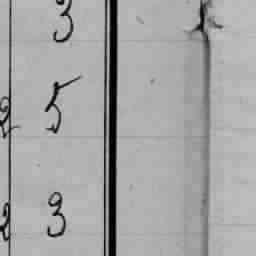 3
2 5
2 3